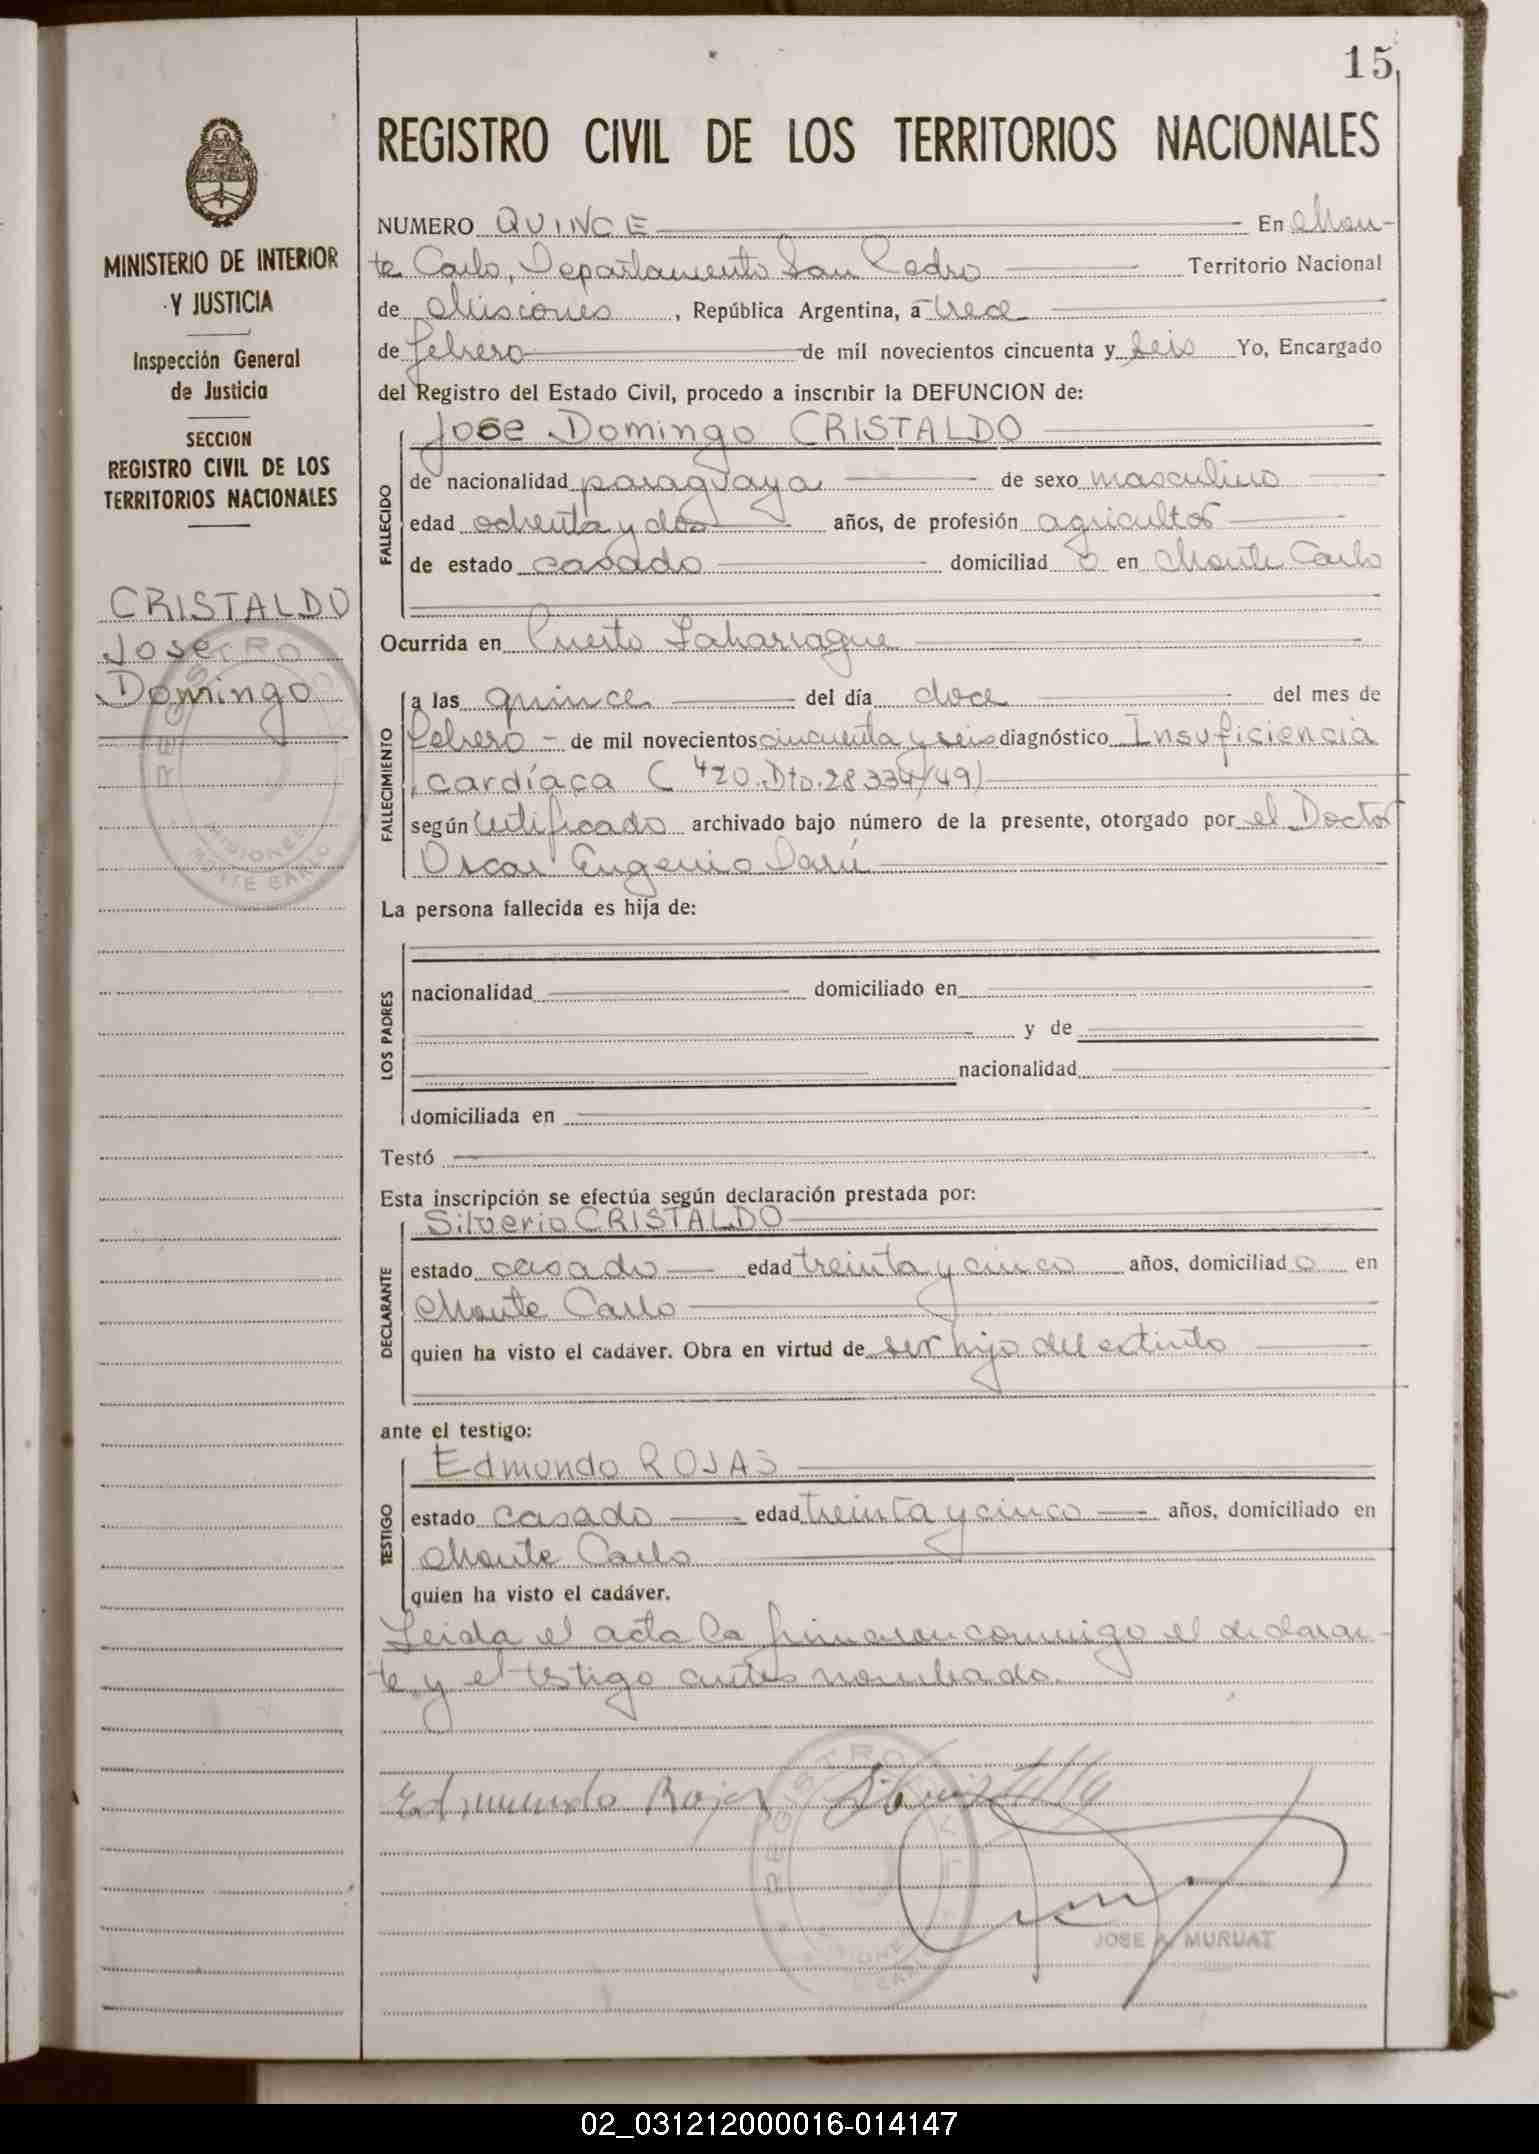 15
REGISTRO CIVIL DE LOS TERRITORIOS NACIONALES
MINISTERIO DE INTERIOR
Y JUSTICIA
Inspección General
de Justicia
SECCION
REGISTRO CIVIL DE LOS
TERRITORIOS NACIONALES
CRISTALDO
Jose
Domingo
NUMERO QUINCE En Mon-
te Carlo, Departamento San Pedro Territorio Nacional
de Misiones, República Argentina, a trece
de febrero de mil novecientos cincuenta y seis Yo, Encargado
del Registro del Estado Civil, procedo a inscribir la DEFUNCION de:
Jose Domingo CRISTALDO
FALLECIDO
de nacionalidad paraguaya de sexo masculino
edad ochenta y dos años, de profesión agricultor
de estado casado domiciliad o en Monte Carlo
Ocurrida en Puerto Laharrague
FALLECIMIENTO
a las quince del día doce del mes de
febrero - de mil novecientos cincuenta y seis diagnóstico Insuficiencia
cardíaca (420.Dto.28334/49)
según Certificado archivado bajo número de la presente, otorgado por el Doctor
Oscar Eugenio Darú
La persona fallecida es hija de:
LOS PADRES
nacionalidad domiciliado en
y de
nacionalidad
domiciliada en
Testó
Esta inscripción se efectúa según declaración prestada por:
Silverio CRISTALDO
DECLARANTE
estado casado edad treinta y cinco años, domiciliad o en
Monte Carlo
quien ha visto el cadáver. Obra en virtud de ser hijo del extinto
ante el testigo:
Edmundo ROJAS
TESTIGO
estado casado edad treinta y cinco años, domiciliado en
Monte Carlo
quien ha visto el cadáver.
Leida el acta la firmaron conmigo el declaran-
te y el testigo antes nombrado.
Edmundo Rojas
JOSE A. MURUAT
REGISTRO
MISIONES
MONTE CARLO
02_031212000016-014147